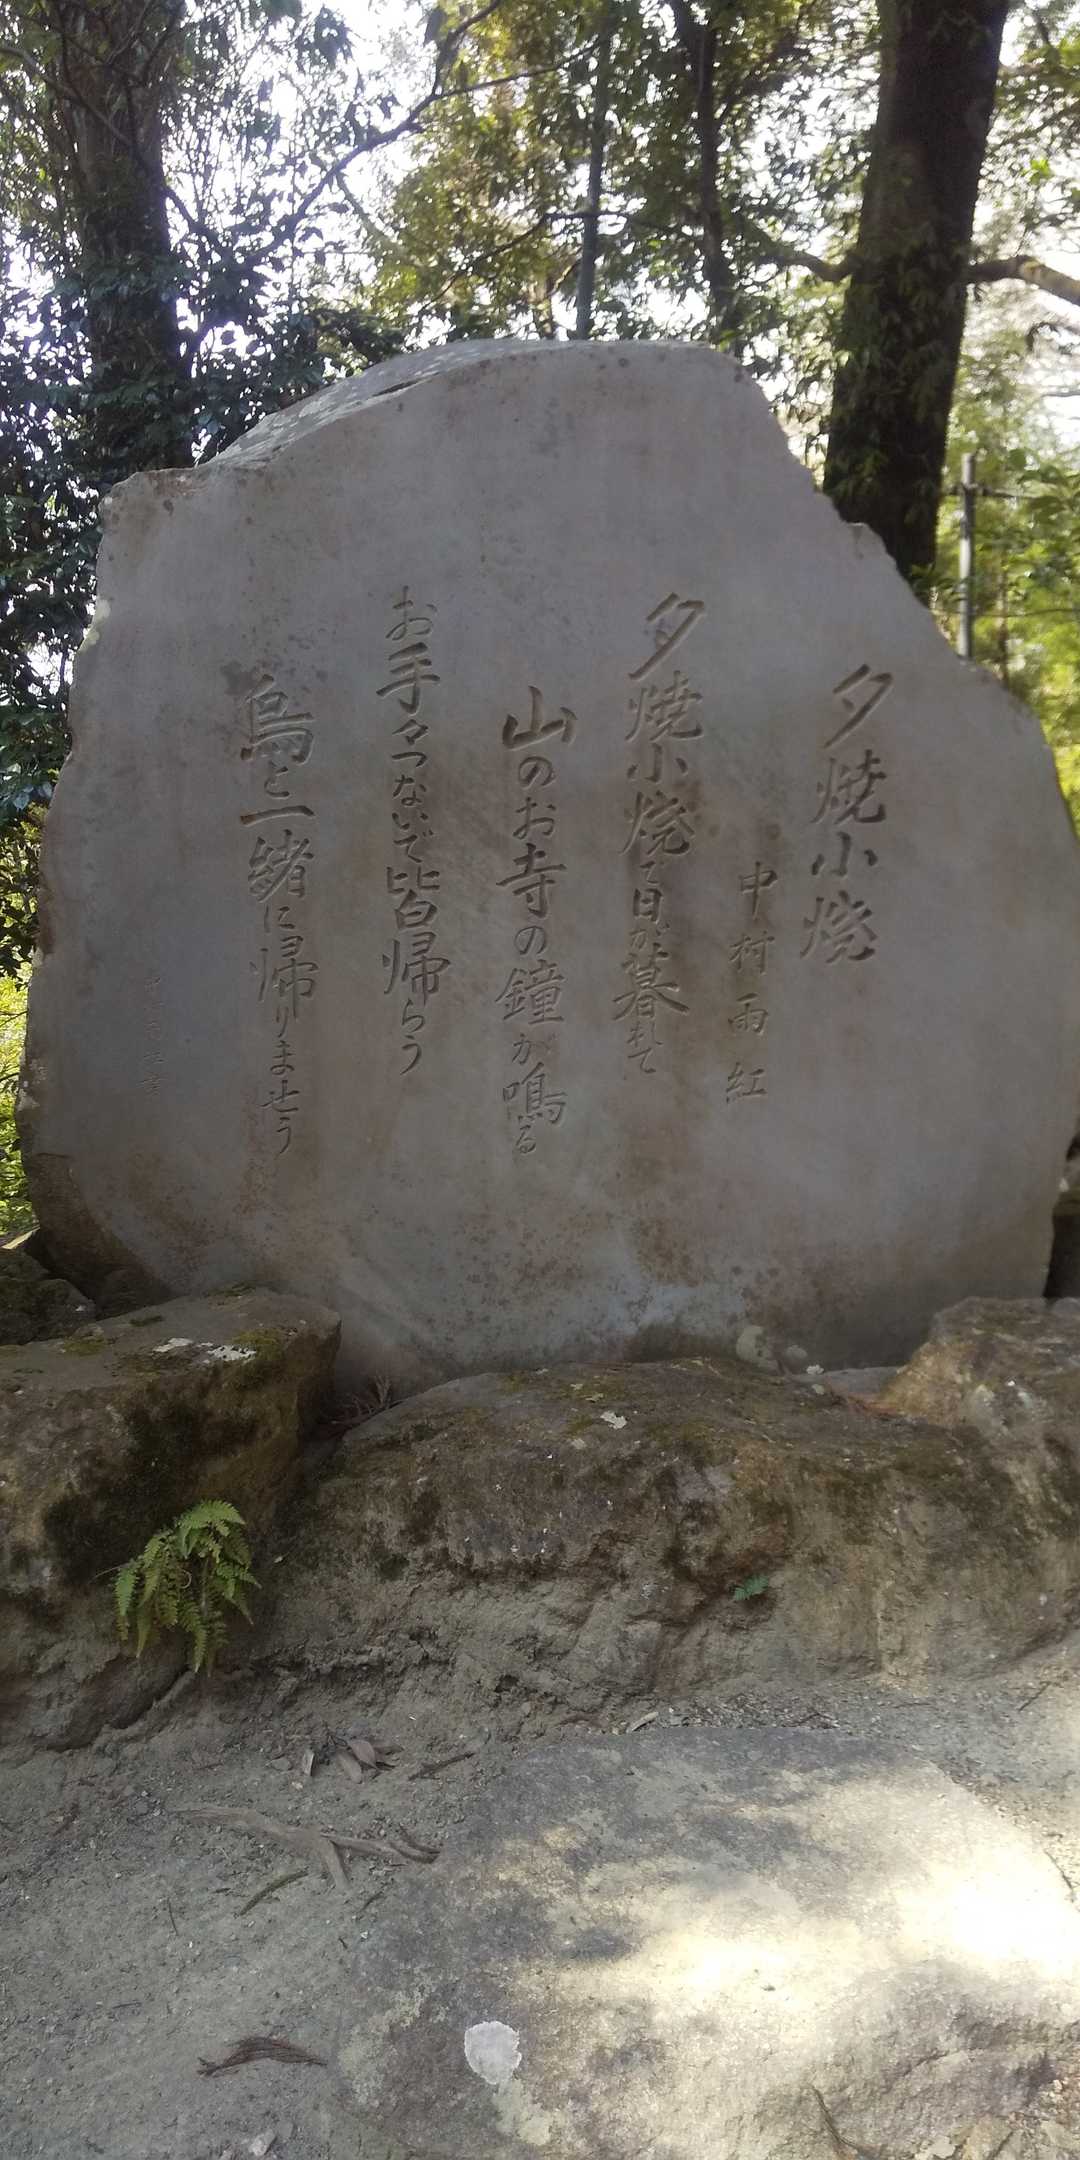 夕焼小焼
中村雨紅
夕焼小焼で日が暮れて
山のお寺の鐘が鳴る
お手々つないで皆帰らう
烏と一緒に帰りませう